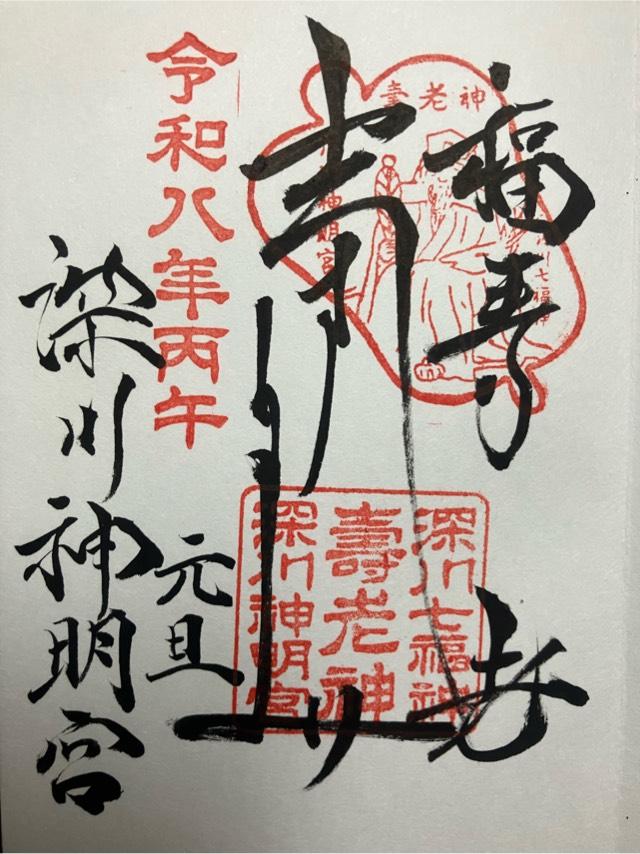 福寿
老
壽老神
七福神
神明宮
深川七福神
壽老神
深川神明宮
令和八年丙午
元旦
深川神明宮